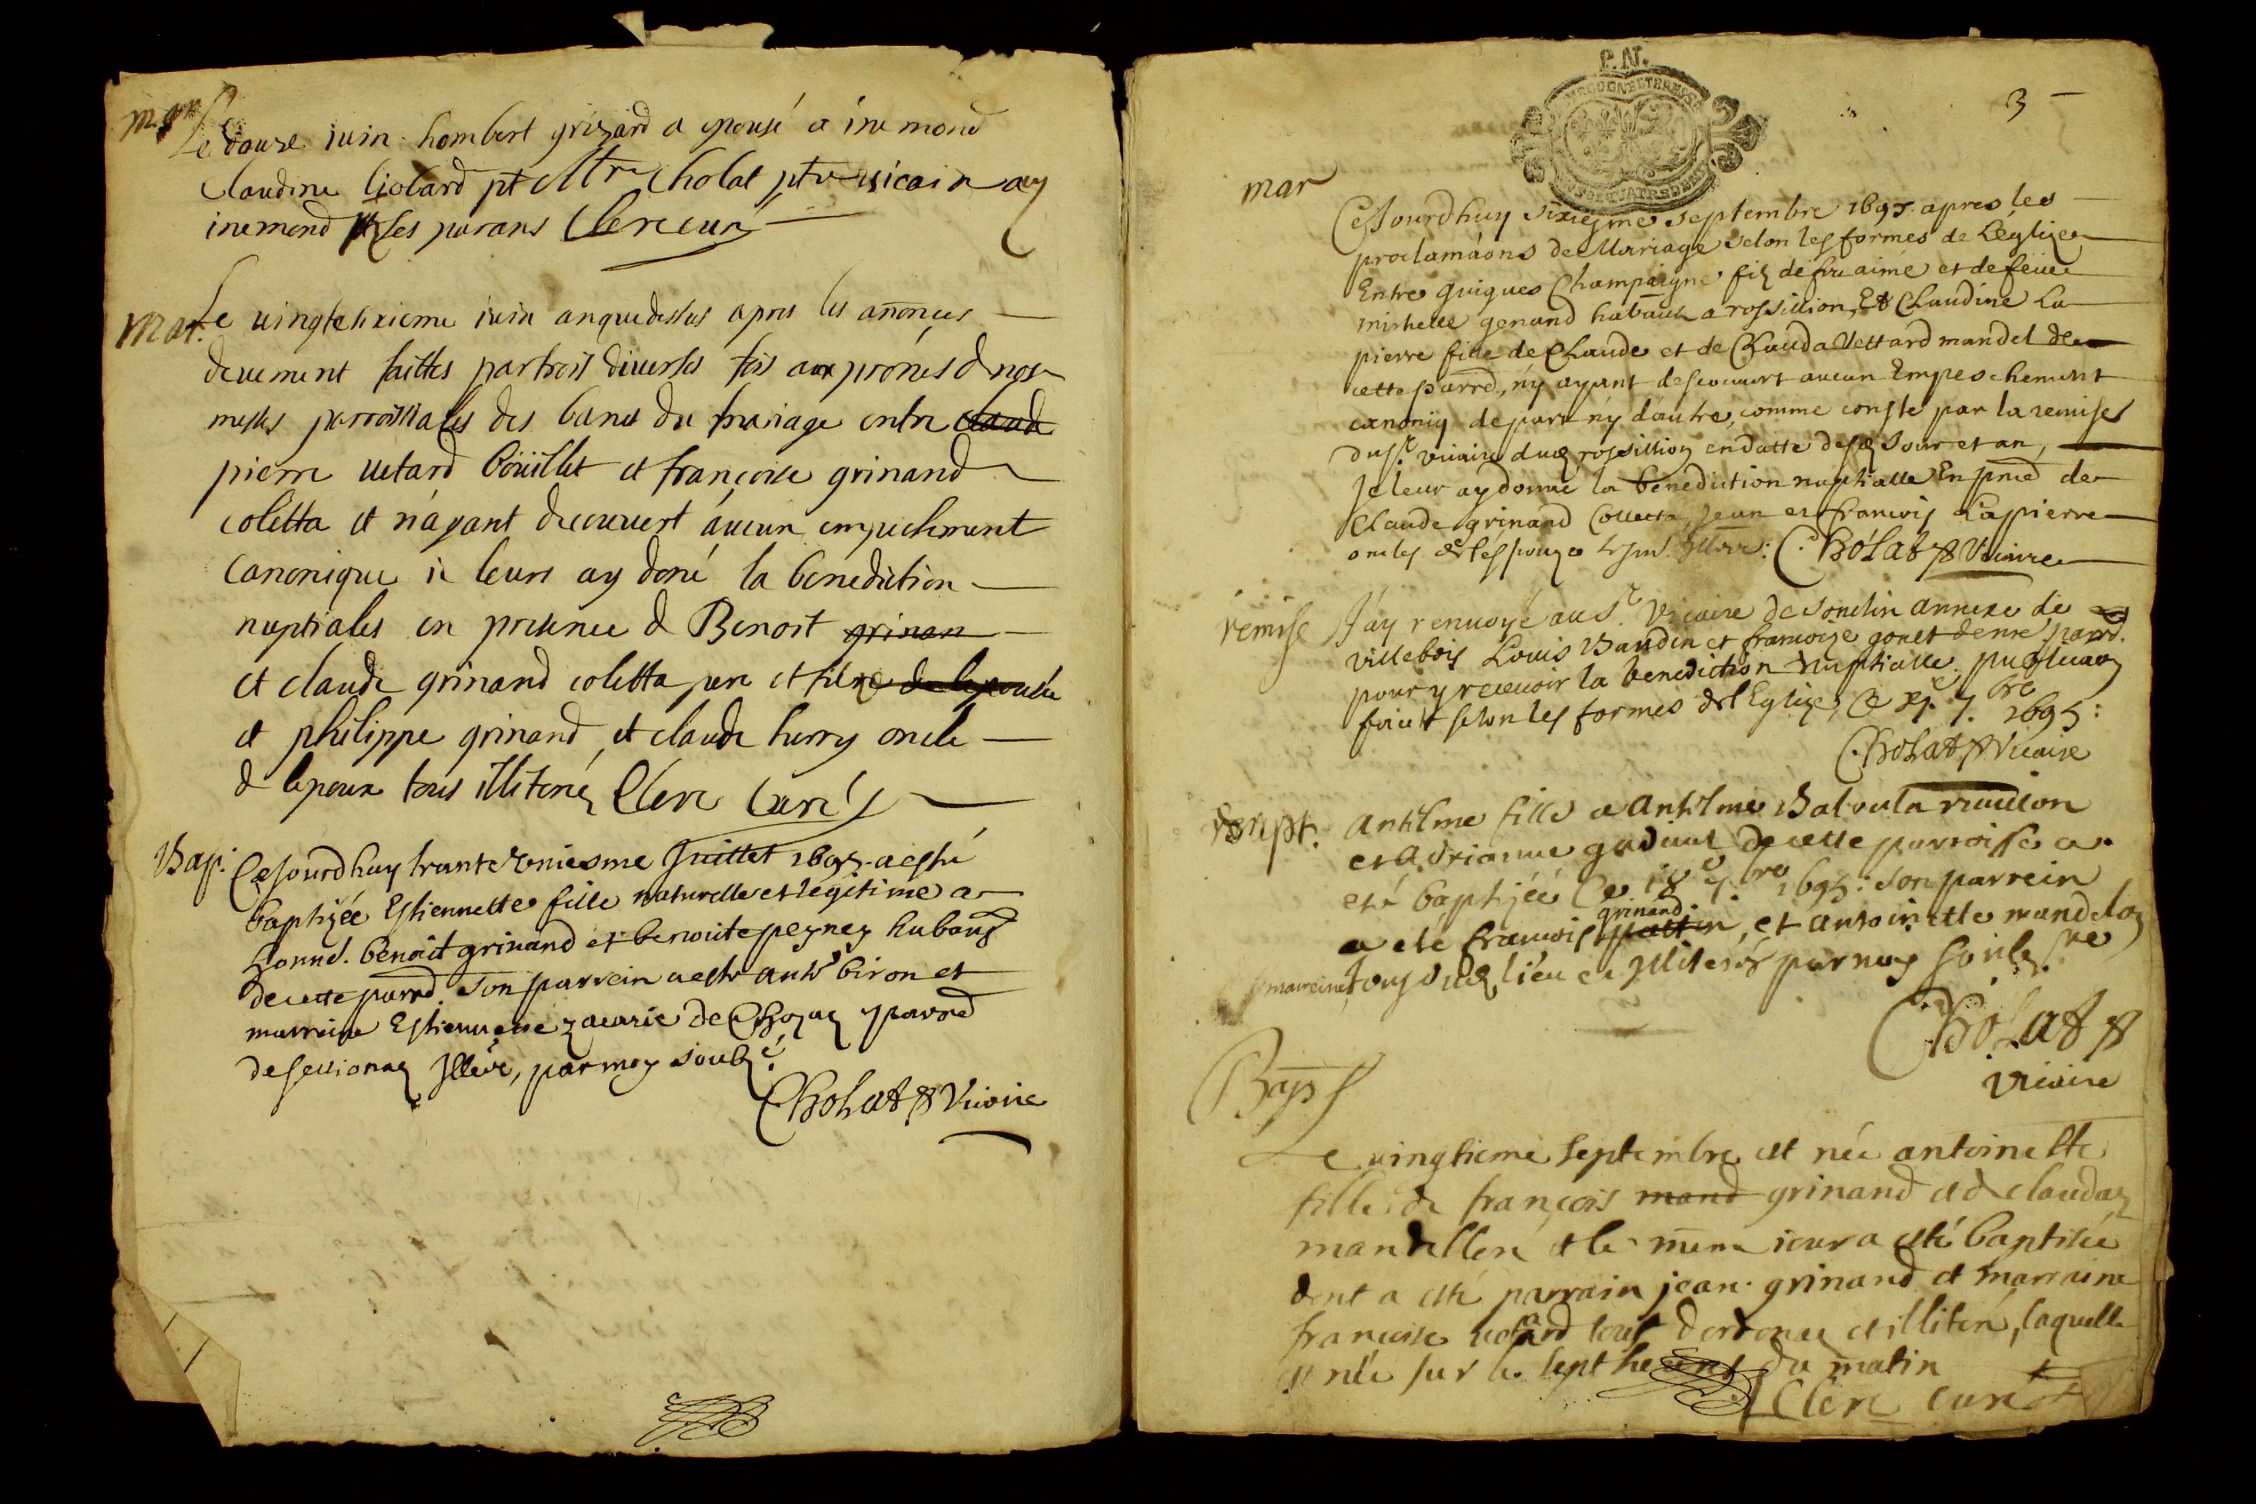 mar
Le douze iuin hombert grinard a epousé a inimond
Claudine liolard pt Mtre Cholat ptre uicain au
inimond & ses parans Clerc curé
mar. Le uingtesixieme iuin an que dessus apres les anonces
deuement faittes par trois diuerses fois aux prônes de nos
messes parroissiales des bans du mariage entre claude
pierre uetard boüillet et françoise grinand
coletta et n'ayant decouuert aucun empechement
Canonique ie leurs ay doné la benediction
nuptiales en presence de Benoit grinan
et claude grinand coletta pere et frere de lepousée
et philippe grinand et claude hurry oncle
de lepoux tous illiterés Clerc Curé
Bap. Cejourdhuy trante uniesme Juillet 1695 a esté
baptizée Estiennette fille naturelle et legitime a
honne. benoit grinand et benoite peyney habans
de cette parrd. son parrein a esté anth. biron et
marreine Estiennette zacarie de parrd
de illére, par moy soubz.é
Cholat p Vicaire
P.N.
3
mar
Cejourdhuy sixiesme septembre 1695 apres les
proclamãons de Mariage selon les formes de L'eglize
Entre guigues Champaigne filz de feu aimé et de feue
michelle genand habant a rossillion, Et Claudine La
pierre fille de Claude et de Clauda Vettard mandel de
cette parrd, n'y ayant descouuert aucun Empeschement
canoniq de part n'y dautre, comme conste par la remise
du Sr. vicaire dud rossillion en datte de ce Jour et an,
Je leur ay donné la benediction nuptialle En pnce de
Claude grinand Colletta, Jean et francois Lapierre
oncles de lespouze illere: Cholat p Vicaire
remise J'ay renuoyé au Sr. Vicaire de Souclin annexe de
villebois Louis Baudin et francoize gonet de nre parrd.
pour y receuoir la benediction Nuptialle. publicaons
faict selon les formes de l'Eglize, Ce 7.bre 1695:
Cholat p Vicaire
bapt. Antelme fille a Antelme
et Adrianne de cette parroisse a
esté baptizée Ce 18e 7.bre 1695: son parrein
a eté francois pattin grinand, et antoinette mandelon
marreine tous dud lieu et illiterés par moy soubz.né
Cholat p
vicaire
Bap
Le uingtieme septembre est née antoinette
fille de françois mand grinand et de claudaz
mandelleré et le meme iour a esté baptisée
dont a esté parrain jean grinand et marraine
francoise uetard tous d'ordonaz et illiteré, laquelle
est née sur les sept heures du matin
Clerc curé